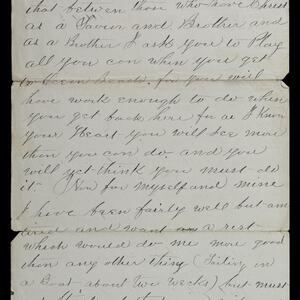 that between those who have Christ
as a Savior and Brother and
as a Brother I ask you to Play
all you can when you get
to Ocean for you will
have work enough to do when
you get back here for as I know
your Heart you will see more
than you can do and you
will yet think you must do
it" Now for myself and mine
I have been fairly well but am
tired and want a rest
which would do me more good
than any other thing (Sailing in
a Boat about two weeks) but must